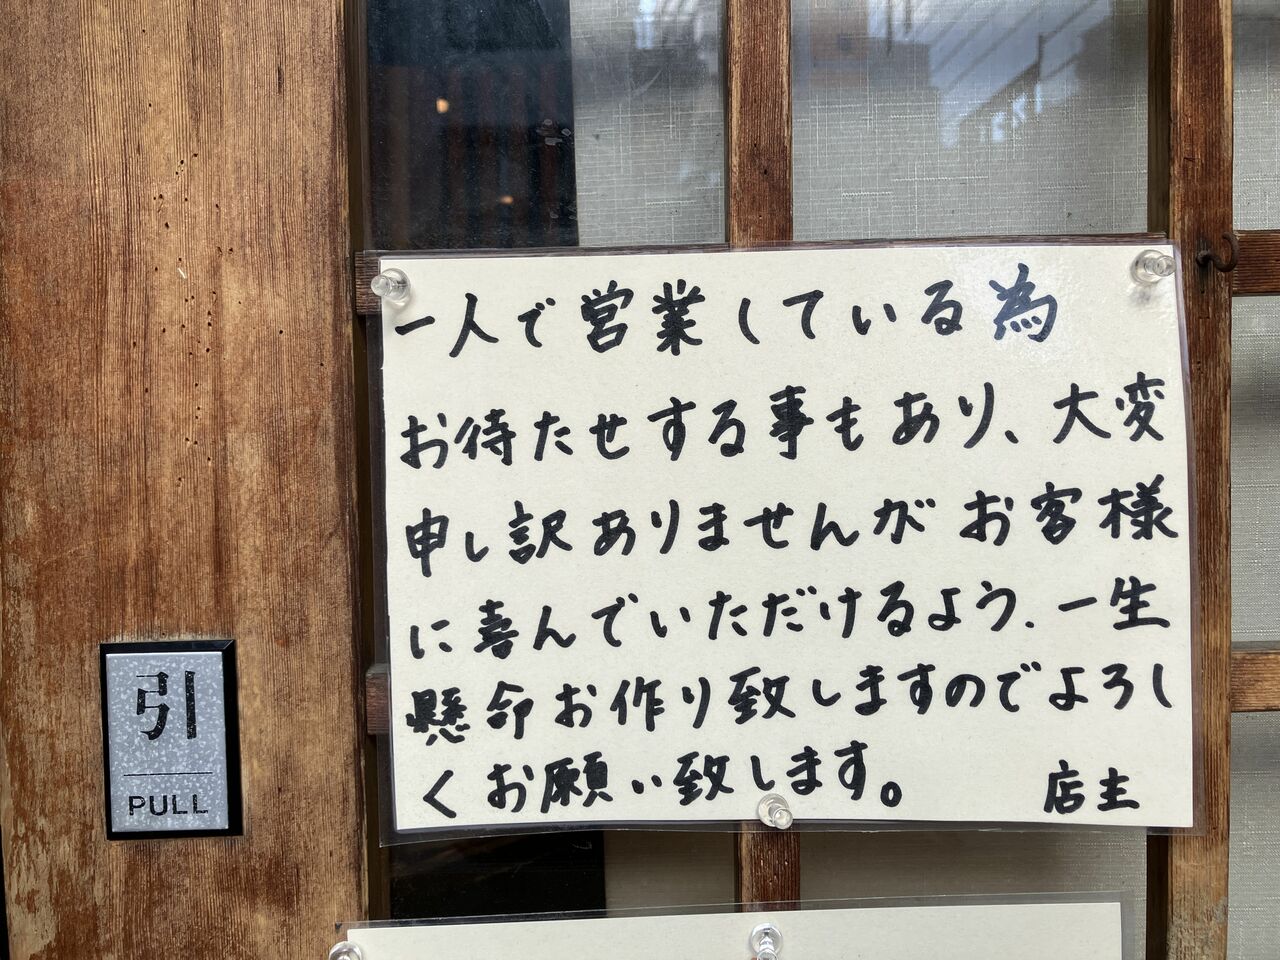 一人で営業している為
お待たせする事もあり、大変
申し訳ありませんがお客様
に喜んでいただけるよう、一生
懸命お作り致しますのでよろし
くお願い致します。 店主
引
PULL